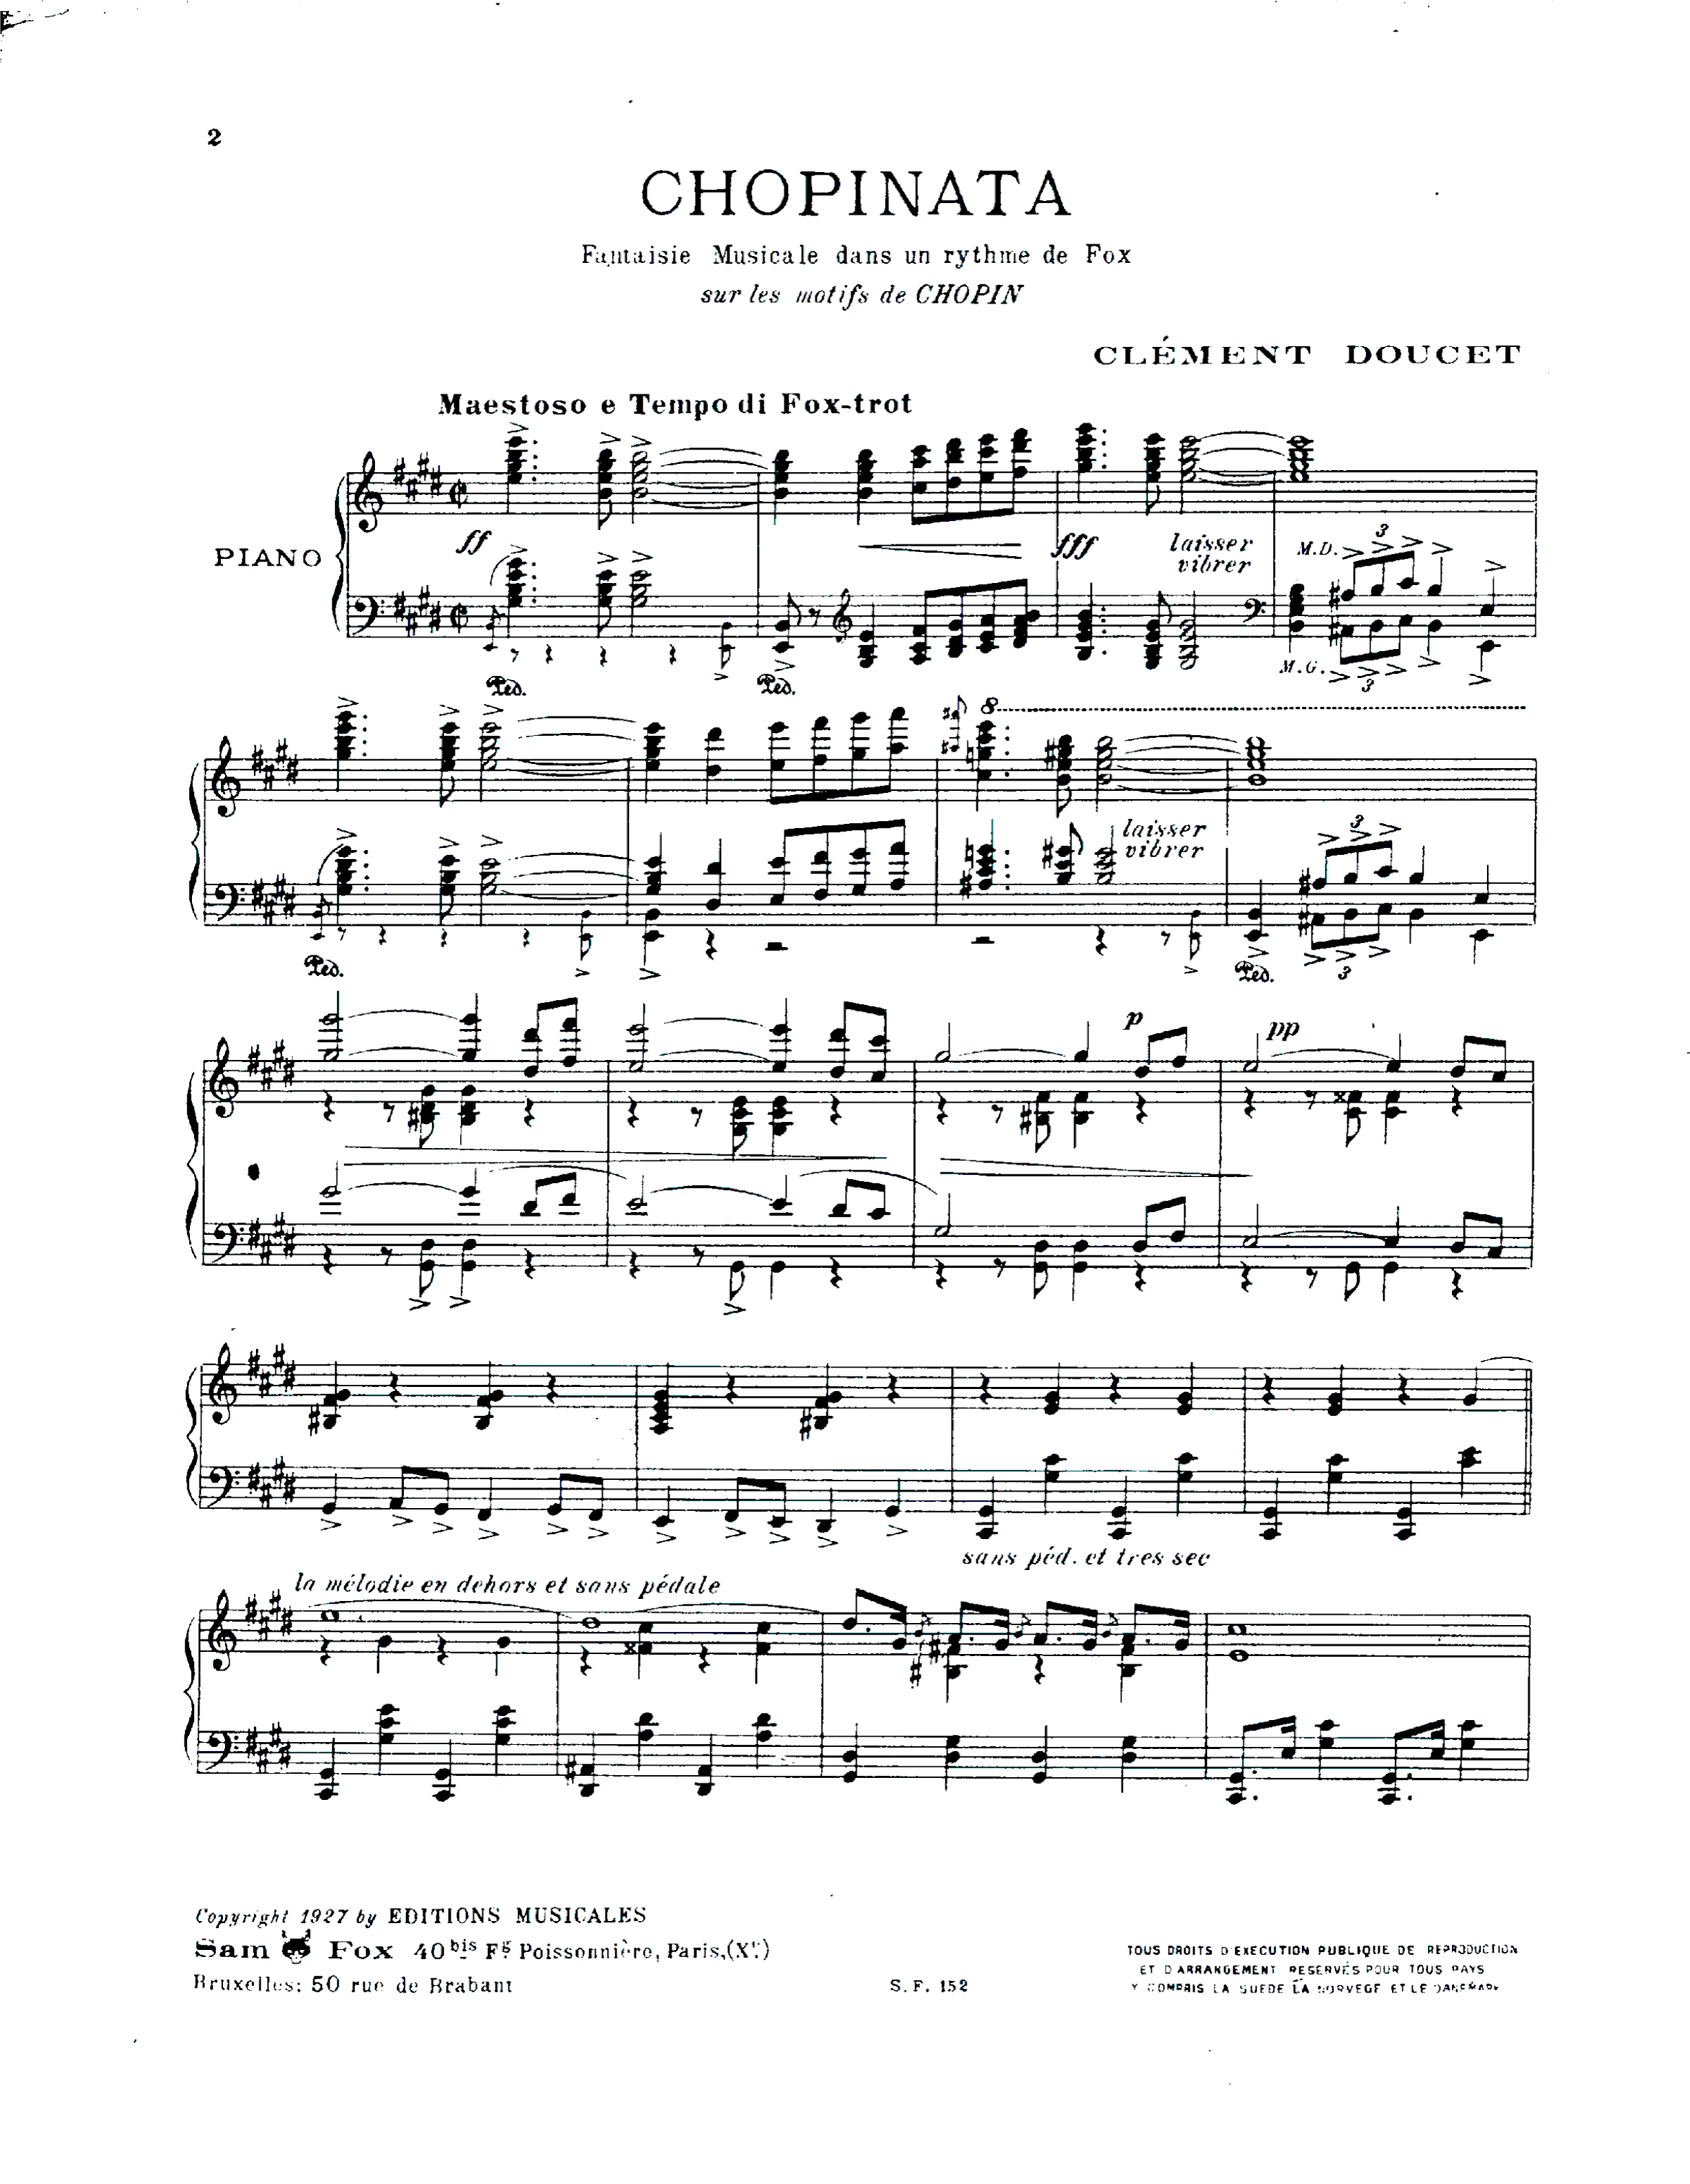 2
CHOPINATA
Fantaisie Musicale dans un rythme de Fox
sur les motifs de CHOPIN
CLÉMENT DOUCET
Maestoso e Tempo di Fox-trot
PIANO
ff
fff
laisser
vibrer
M.D.
3
M.G.
3
Ped.
Ped.
8
laisser
vibrer
3
3
Ped.
Ped.
p
pp
sans péd. et tres sec
la mélodie en dehors et sans pédale
Copyright 1927 by EDITIONS MUSICALES
Sam Fox 40bis Fg Poissonnière, Paris,(Xe)
Bruxelles: 50 rue de Brabant
S.F. 152
TOUS DROITS D'EXECUTION PUBLIQUE DE REPRODUCTION
ET D'ARRANGEMENT RESERVÉS POUR TOUS PAYS
Y COMPRIS LA SUEDE LA NORVEGE ET LE DANEMARK